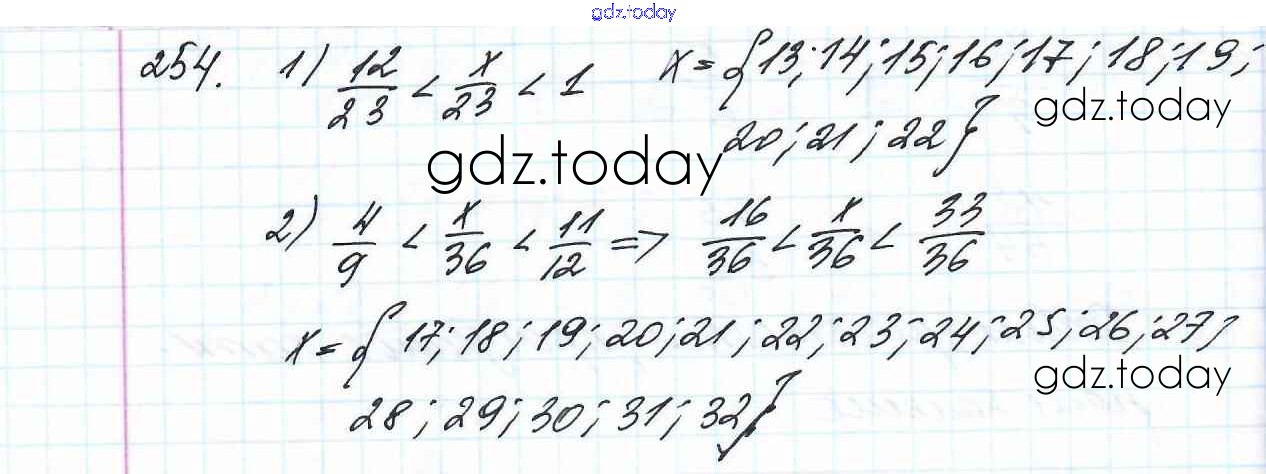 gdz.today
254. 1) 12/23 < x/23 < 1 x = {13; 14; 15; 16; 17; 18; 19;
gdz.today
20; 21; 22}
gdz.today
2) 4/9 < x/36 < 11/12 => 16/36 < x/36 < 33/36
x = {17; 18; 19; 20; 21; 22; 23; 24; 25; 26; 27;
gdz.today
28; 29; 30; 31; 32}